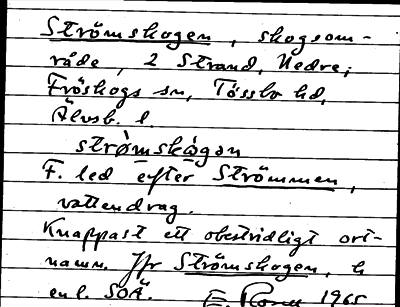 Strömskogen, skogsom-
råde, 2 Strand, Nedre;
Fröskogs sn, Tössbo hd,
Älvsb. l.
strömskògən
F. led efter Strömmen,
vattendrag.
Knappast ett obestridligt ort-
namn. Jfr Strömskogen, h
enl. SOÄ.
E. 1965